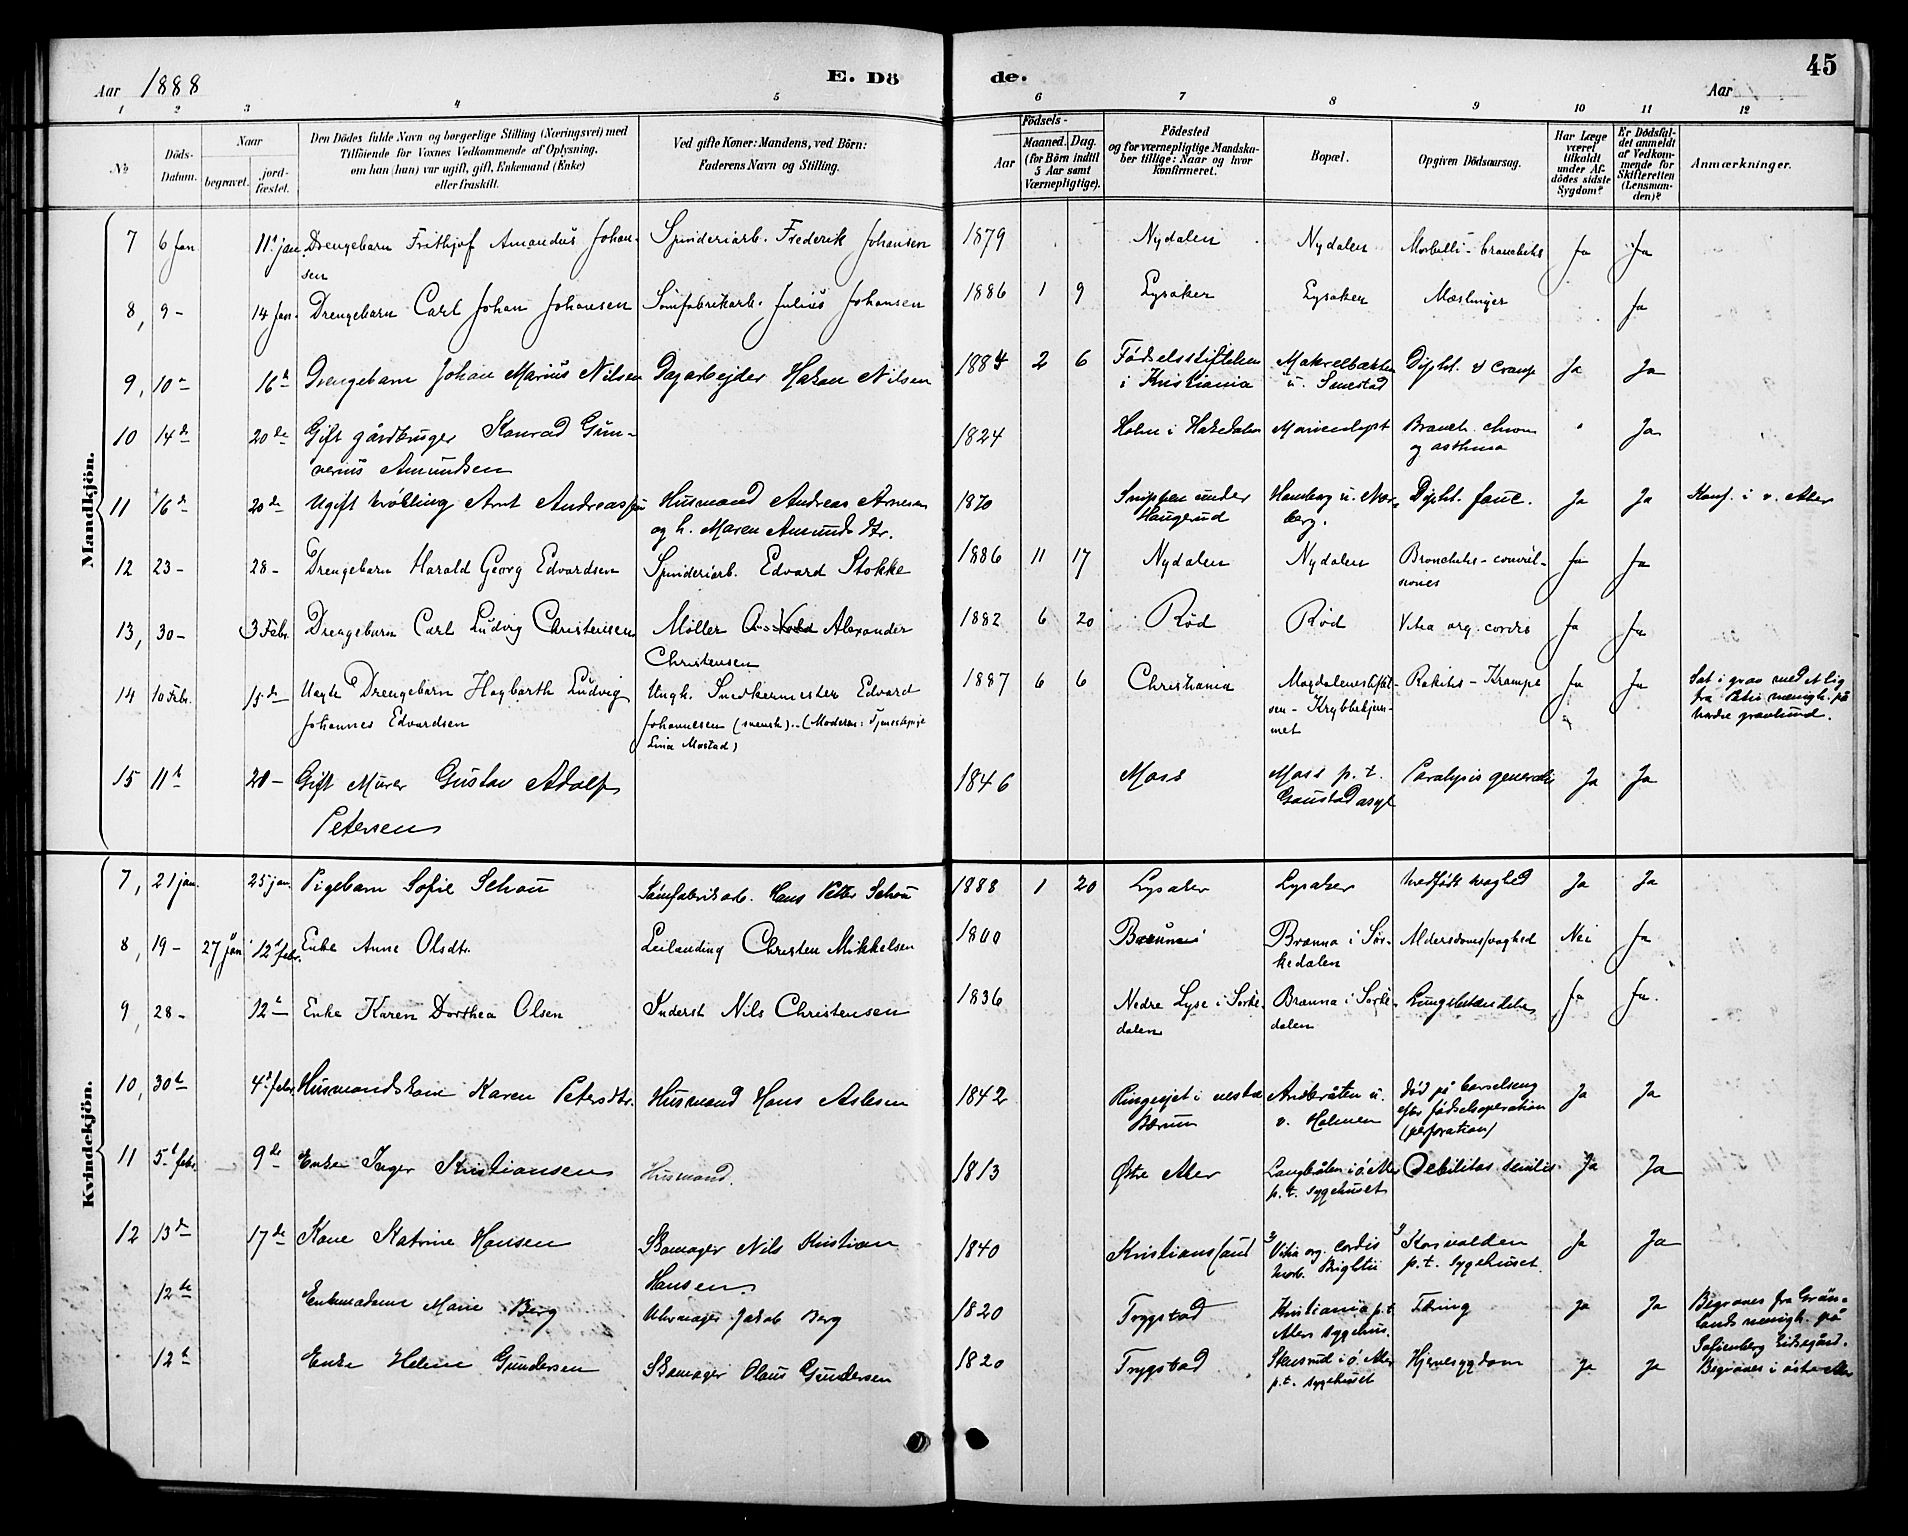 Aar 1888
E. Dö
de.
Aar
45
1 2 3 4 5
6 7 8 9 10 11 12
No
Döds-Datum.
Naar
begravet.
jord-fæstet.
Den Dödes fulde Navn og borgerlige Stilling (Næringsvei) med
Tilföiende for Voxnes Vedkommende af Oplysning,
om han (hun) var ugift, gift, Enkemand (Enke)
eller fraskilt.
Ved gifte Koner: Mandens, ved Börn:
Faderens Navn og Stilling.
Födsels-
Aar
Maaned. Dag.
(for Børn indtil
5 Aar samt
Værnepligtige).
Födested
og for værnepligtige Mandska-
ber tillige: Naar og hvor
konfirmeret.
Bopæl.
Opgiven Dödsaarsag.
Har Læge
været
tilkaldt
under Af-
dödes sidste
Sygdom?
Er Dödsfal-
det anmeldt
af Vedkom-
mende for
Skifteretten
(Lensman-
den)?
Anmærkninger.
Mandkjön.
7 6 Jan 11te jan Drengebarn Frithjof Amandus Johan- Spinderiarb. Frederik Johansen 1879 Nydalen Nydalen Morbilli - bronchitis Ja Ja
sen
8, 9 - 14 Jan. Drengebarn Carl Johan Johansen Sömfabrikarb. Julius Johansen 1886 1 9 Lysaker Lysaker Mæslinger Ja
9, 10de 16de Drengebarn Johan Marius Nilsen Dagarbejder Hakon Nilsen 1884 2 6 Fødselsstiftelsen Makrelbækken Dipht. & croup Ja Ja
i Kristiania u. Smestad
10 14de 20de Gift gårdbruger Konrad Gun- 1824 Holm i Hakedalen Marienlyst Bronch. chron " Ja
nerius Amundsen og asthma
11 16de 20de Ugift yngling Arnt Andreassen Husmand Andreas Arnesen 1870 Snippen under Homberg u. Nor- Dipht. fauc. Ja Ja Konf. i v. Aker
og h. Maren Amundsdtr. Haugerud berg.
12 23 - 28 - Drengebarn Harald Georg Edvardsen Spinderiarb. Edvard Stokke 1886 11 17 Nydalen Nydalen Bronchitis - convul- Ja Ja
siones
13, 30 - 3 Febr. Drengebarn Carl Ludvig Christensen Møller Alexander 1882 6 20 Rød Rød Vitia org. cordis Ja Ja
Christensen
14 10 Febr. 15de Uægte Drengebarn Hagbarth Ludvig Ungk. Snedkermester Edvard 1887 6 6 Christiania Magdalenestiftel- Rakitis - Krampe Ja Ja Sat i grav med et lig
Johannes Edvardsen Johannesen (svensk). - (Moderen: Tjenestepige sen - Krybbehjem- fra Petri menigh. på
Lina Mostad) met nordre gravlund.
15 11te 20 - Gift Murer Gustav Adolf 1846 Moss Moss p.t. Paralysis generalis Ja Ja
Petersen Gaustad asyl
Kvindekjön.
7, 21 jan. 25 jan. Pigebarn Sofie Schou Sömfabrikarb. Hans Petter Schou 1888 1 20 Lysaker Lysaker Medfödt svaghed Ja Ja
8, 19 - 27 jan 12te febr. Enke Anne Olsdtr. Leilænding Christen Mikkelsen 1800 Bærum Brenna i Sør- Alderdomssvaghed Nei Ja
kedalen
9, 28 - 12te Enke Karen Dorthea Olsen Inderst Nils Christensen 1836 Nedre Lyse i Sørke- Brenna i Sørke- Lungebetændelse Ja Ja.
dalen dalen
10, 30te 4de febr. Husmandskone Karen Petersdtr. Husmand Hans Aslesen 1842 Ringerijet i vestre Ankeråten u. Död på barselseng Ja Ja
Bærum v. Holmen efter fødselsoperation
(perforation)
11 5te febr. 9de Enke Inger Kristiansen Husmand. 1813 Østre Aker Langbråten i ö. Aker Debilitas senilis Ja Ja
p.t. sygehuset
12 13de 17de Kone Katrine Hansen Skomager Nils Kristian 1840 Kristianssand Vitia org. cordis Korsvolden Ja Ja
Hansen. morb. Brightii p.t. sygehuset.
12te Enkemadame Marie Berg Uhrmager Jakob Berg 1820 Trygstad Kristiania p.t. Tæring Ja Ja Begraves fra Grøn-
Akers sygehus. lands menigh. på
Sofienberg kirkegård.
12te Enke Helene Gundersen Skomager Olaus Gundersen 1820 Trygstad Stensrud i ö. Aker Hjernesygdom Ja Ja Begraves i östre Aker
p.t. sygehuset